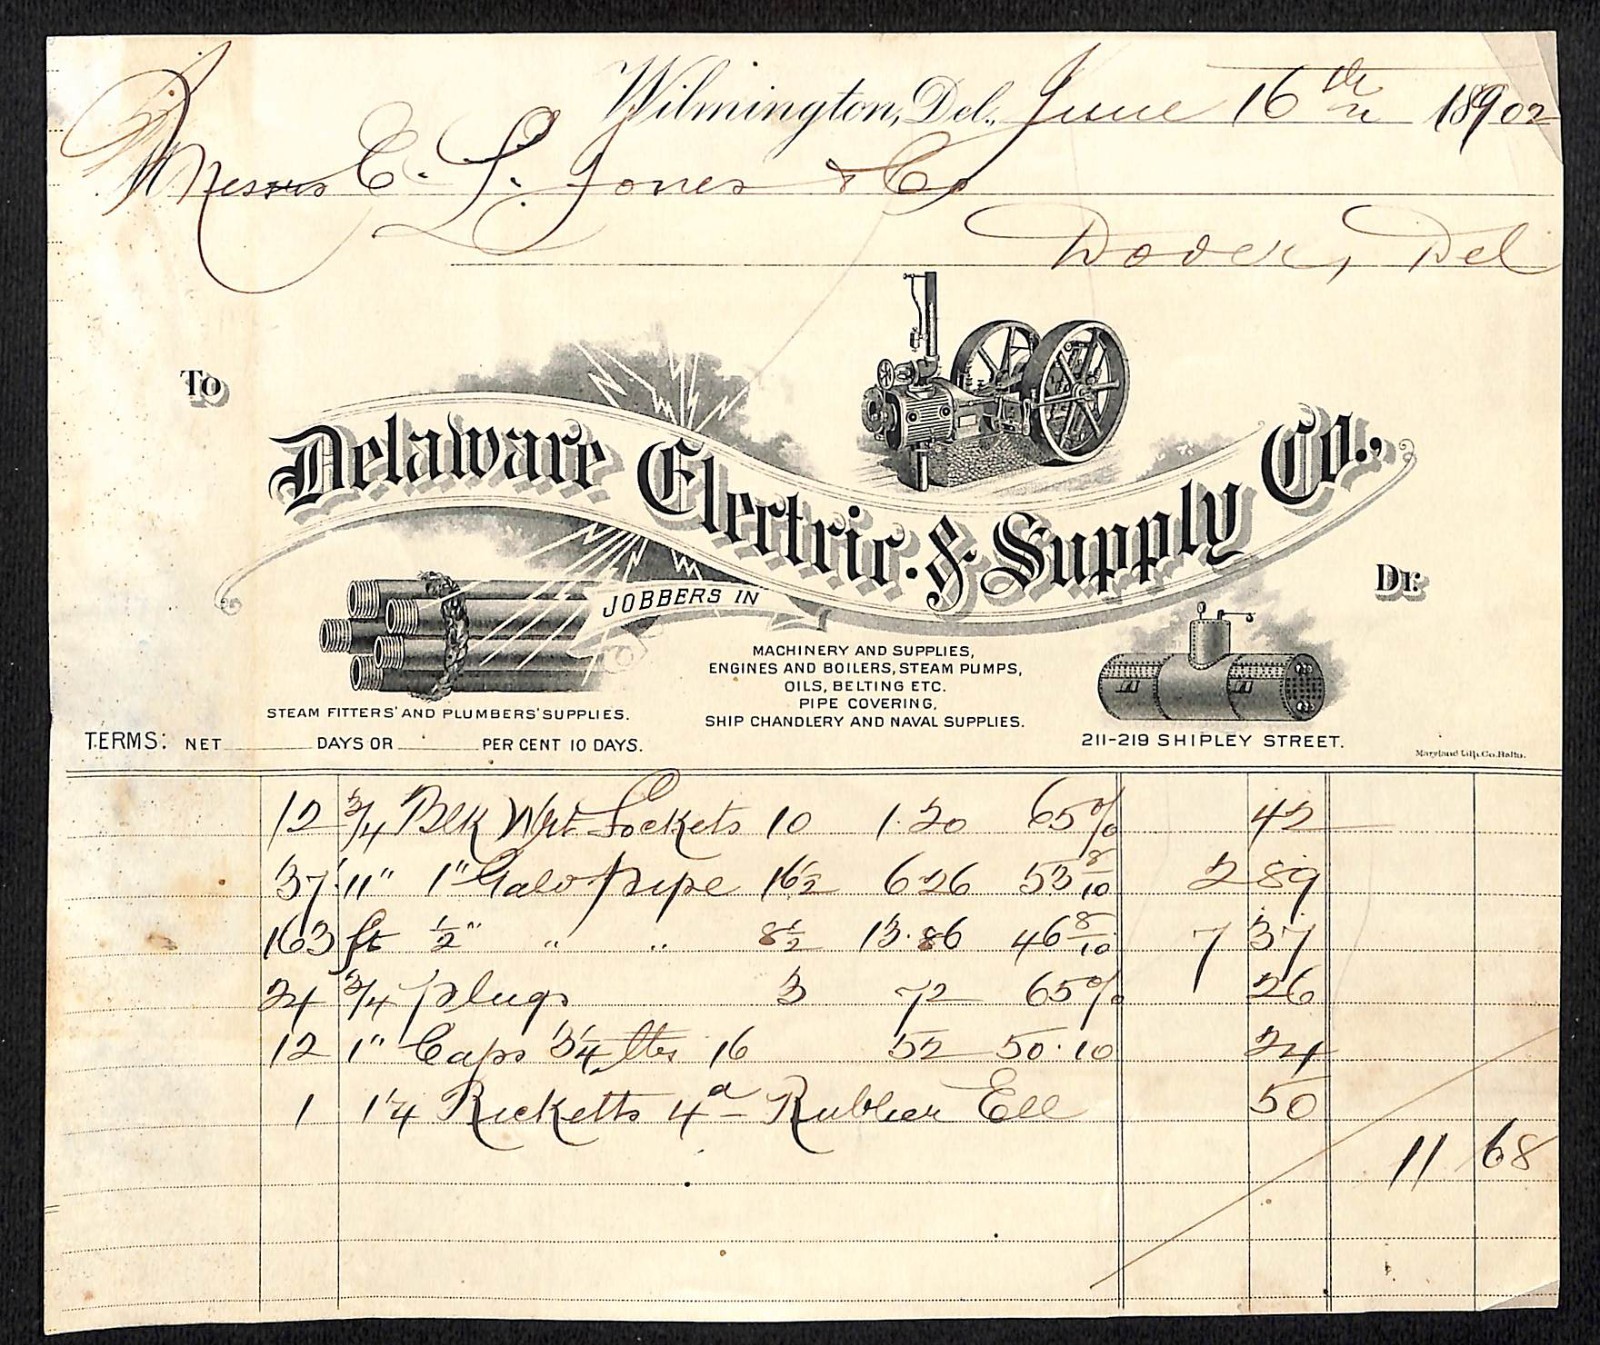 Wilmington, Del., June 16th 18902
Messrs E. L. Jones & Co
Dover, Del
To
Delaware Electric & Supply Co.
Dr.
JOBBERS IN
MACHINERY AND SUPPLIES,
ENGINES AND BOILERS, STEAM PUMPS,
OILS, BELTING ETC.
PIPE COVERING,
SHIP CHANDLERY AND NAVAL SUPPLIES.
STEAM FITTERS' AND PLUMBERS' SUPPLIES.
211-219 SHIPLEY STREET.
TERMS: NET DAYS OR PER CENT 10 DAYS.
Maryland Lith. Co. Balto.
12 3/4 Blk Wrt Sockets 10 1.20 65% 42
37' 11" 1" Galv pipe 16½ 6 26 53 8/10 2 89
163 ft ½" " " 8½ 13.86 46 8/10 7 37
24 3/4 plugs 3 72 65% 26
12 1" Caps 3¼ lbs 16 52 50.10 24
1 1¼ Ricketts 4 Rubber Ell 50
11 68